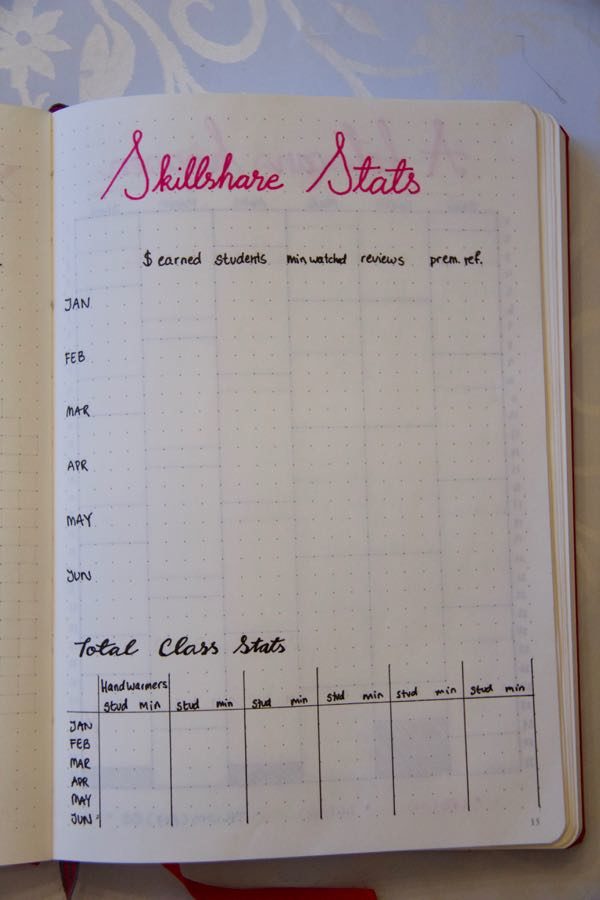 Skillshare Stats
$ earned students min watched reviews prem. ref.
JAN
FEB
MAR
APR
MAY
JUN
Total Class Stats
Handwarmers
stud min stud min stud min stud min stud min stud min
JAN
FEB
MAR
APR
MAY
JUN
15